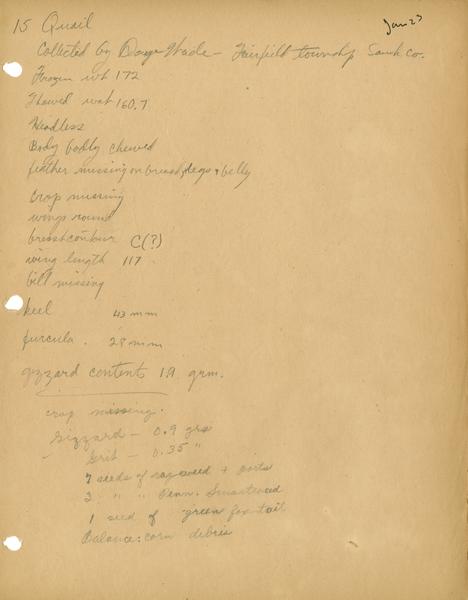 15 Quail
Jan 23
Collected by Doug Wade - Fairfield township Sauk Co.
Frozen wt 172
Thawed wat 160.7
Headless
Body badly chewed
feather missing on breast, legs & belly
Crop missing
wings round
breast contour C(?)
wing length 117
bill missing
keel 43 mm
furcula. 28 mm
gizzard content 1.9 grm.
crop missing.
Gizzard - 0.9 grs
Grit - 0.35 "
7 seeds of ragweed + parts
2 " " Penn. Smartweed
1 seed of green foxtail
Balance: corn debris